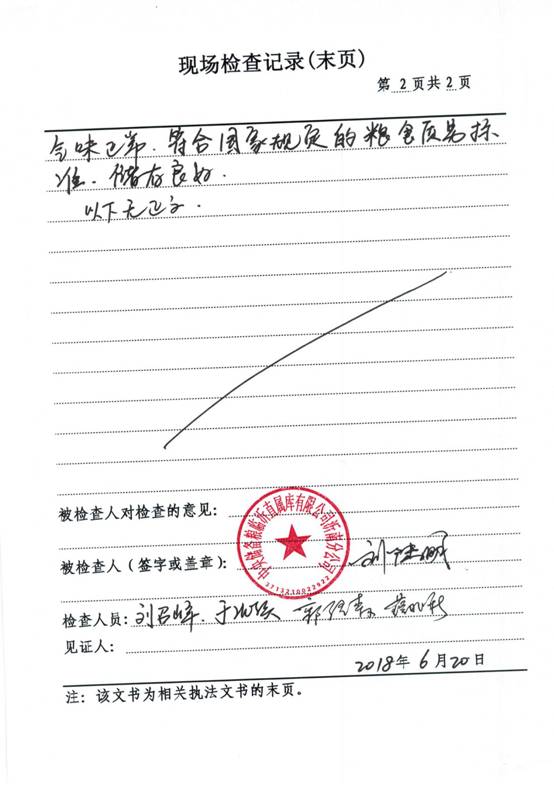 现场检查记录(末页)
第 2 页共 2 页
气味正常.符合国家规定的粮食质量标
准.储存良好.
以下无正文.
被检查人对检查的意见:
中央储备粮临沂直属库有限公司沂南分公司
3713210022922
被检查人(签字或盖章):
检查人员:
见证人:
2018年 6月20日
注:该文书为相关执法文书的末页。